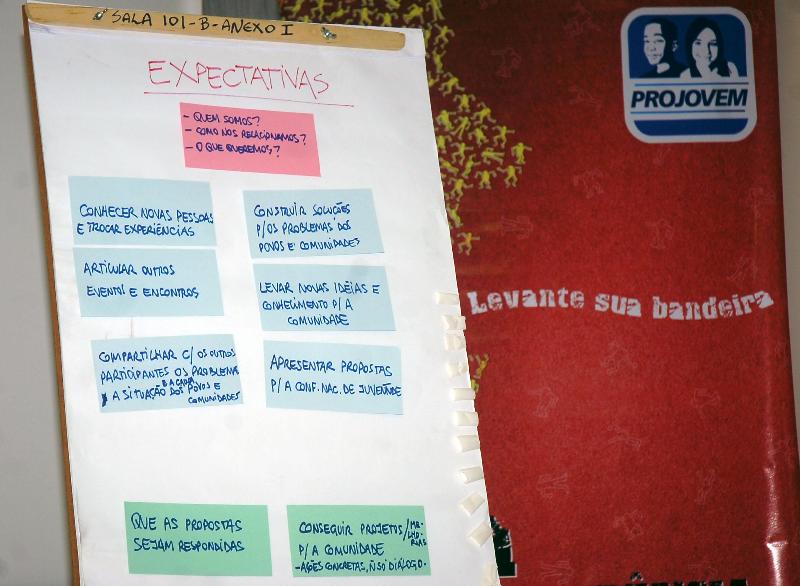 SALA 101-B-ANEXO I
EXPECTATIVAS
- QUEM SOMOS?
- COMO NOS RELACIONAMOS?
- O QUE QUEREMOS?
CONHECER NOVAS PESSOAS
E TROCAR EXPERIÊNCIAS
CONSTRUIR SOLUÇÕES
P/OS PROBLEMAS DOS
POVOS E COMUNIDADES
ARTICULAR OUTROS
EVENTOS E ENCONTROS
LEVAR NOVAS IDÉIAS E
CONHECIMENTO P/ A
COMUNIDADE
COMPARTILHAR C/ OS OUTROS
PARTICIPANTES OS PROBLEMA
A SITUAÇÃO DOS POVOS E
COMUNIDADES
APRESENTAR PROPOSTAS
P/ A CONF. NAC. DE JUVENTUDE
QUE AS PROPOSTAS
SEJAM RESPONDIDAS
CONSEGUIR PROJETOS/ME-
LHO-
RIAS
P/ A COMUNIDADE
-AÇÕES CONCRETAS, Ñ SÓ DIÁLOGO.
PROJOVEM
Levante sua bandeira